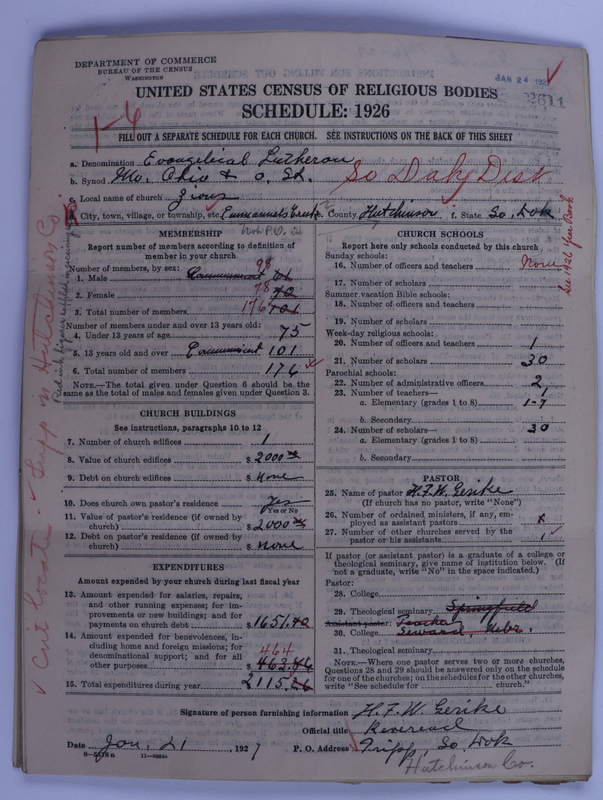 DEPARTMENT OF COMMERCE
BUREAU OF THE CENSUS
WASHINGTON
JAN 24 192
UNITED STATES CENSUS OF RELIGIOUS BODIES
SCHEDULE: 1926
1-6
FILL OUT A SEPARATE SCHEDULE FOR EACH CHURCH. SEE INSTRUCTIONS ON THE BACK OF THIS SHEET
a. Denomination Evangelical Lutheran
b. Synod Mo. Ohio & o. St. So Dak Dist
c. Local name of church Zions
City, town, village, or township, etc. County Hutchinson f. State So. Dak
MEMBERSHIP
Report number of members according to definition of
member in your church
Number of members, by sex:
1. Male Communicant 98
2. Female 78 72
3. Total number of members 176 101
Number of members under and over 13 years old:
4. Under 13 years of age 75
5. 13 years old and over Communicant 101
6. Total number of members 176
NOTE.—The total given under Question 6 should be the
same as the total of males and females given under Question 3.
CHURCH BUILDINGS
See instructions, paragraphs 10 to 12
7. Number of church edifices 1
8. Value of church edifices $ 2000
9. Debt on church edifices $ None
10. Does church own pastor's residence Yes
Yes or No
11. Value of pastor's residence (if owned by
church) $ 2000
12. Debt on pastor's residence (if owned by
church) $ None
EXPENDITURES
Amount expended by your church during last fiscal year
13. Amount expended for salaries, repairs,
and other running expenses; for im-
provements or new buildings; and for
payments on church debt $ 1651.
14. Amount expended for benevolences, in-
cluding home and foreign missions; for
denominational support; and for all
other purposes 464 $ 463.46
15. Total expenditures during year $ 2115.
CHURCH SCHOOLS
Report here only schools conducted by this church
Sunday schools:
16. Number of officers and teachers None
17. Number of scholars
Summer vacation Bible schools:
18. Number of officers and teachers
19. Number of scholars
Week-day religious schools:
20. Number of officers and teachers 1
21. Number of scholars 30
Parochial schools:
22. Number of administrative officers 2
23. Number of teachers— 1
a. Elementary (grades 1 to 8) 1-7
b. Secondary
24. Number of scholars— 30
a. Elementary (grades 1 to 8)
b. Secondary
PASTOR
25. Name of pastor H.F.W. Gerike
(If church has no pastor, write "None")
26. Number of ordained ministers, if any, em-
ployed as assistant pastors x
27. Number of other churches served by the
pastor or his assistants 1
If pastor (or assistant pastor) is a graduate of a college or
theological seminary, give name of institution below. (If
not a graduate, write "No" in the space indicated.)
Pastor:
28. College
29. Theological seminary Springfield
Assistant pastor: Teacher
30. College Seward Nebr.
31. Theological seminary
NOTE.—Where one pastor serves two or more churches,
Questions 28 and 29 should be answered only on the schedule
for one of the churches; on the schedules for the other churches,
write "See schedule for church."
Signature of person furnishing information H. F. W. Gerike
Official title Reverend
Date Jan. 21, 1927 P. O. Address Tripp, So. Dak
Hutchinson Co.
See 1926 Year Book
Cnt locate - Tripp in Hutchinson Co.